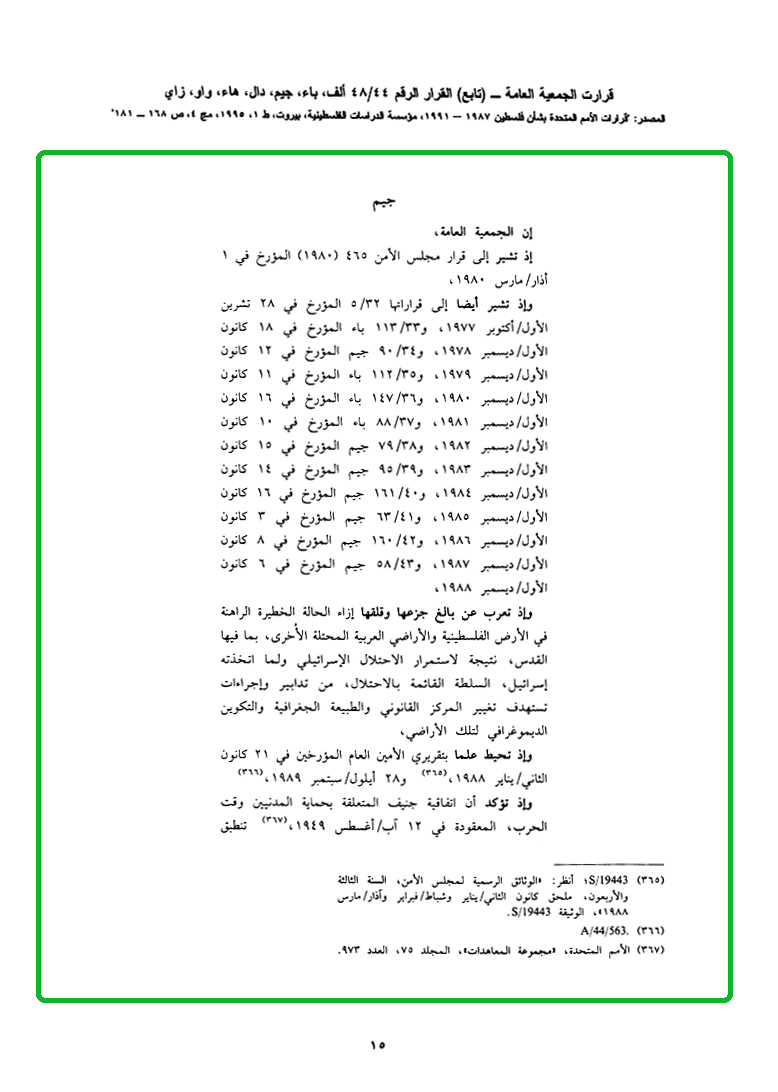 قرارت الجمعية العامة ــ (تابع) القرار الرقم ٤٨/٤٤ ألف، باء، جيم، دال، هاء، واو، زاي
المصدر: "قرارات الأمم المتحدة بشأن فلسطين ١٩٨٧ – ١٩٩١، مؤسسة الدراسات الفلسطينية، بيروت، ط ١، ١٩٩٥، مج ٤، ص ١٦٨ ــ ١٨١"
جيم
إن الجمعية العامة،
إذ تشير إلى قرار مجلس الأمن ٤٦٥ (١٩٨٠) المؤرخ في ١
أذار/مارس ١٩٨٠،
وإذ تشير أيضا إلى قراراتها ٥/٣٢ المؤرخ في ٢٨ تشرين
الأول/أكتوبر ١٩٧٧، و١١٣/٣٣ باء المؤرخ في ١٨ كانون
الأول/ديسمبر ١٩٧٨، و٩٠/٣٤ جيم المؤرخ في ١٢ كانون
الأول/ديسمبر ١٩٧٩، و١١٢/٣٥ باء المؤرخ في ١١ كانون
الأول/ديسمبر ١٩٨٠، و١٤٧/٣٦ باء المؤرخ في ١٦ كانون
الأول/ديسمبر ١٩٨١، و٨٨/٣٧ باء المؤرخ في ١٠ كانون
الأول/ديسمبر ١٩٨٢، و٧٩/٣٨ جيم المؤرخ في ١٥ كانون
الأول/ديسمبر ١٩٨٣، و٩٥/٣٩ جيم المؤرخ في ١٤ كانون
الأول/ديسمبر ١٩٨٤، و١٦١/٤٠ جيم المؤرخ في ١٦ كانون
الأول/ديسمبر ١٩٨٥، و٦٣/٤١ جيم المؤرخ في ٣ كانون
الأول/ديسمبر ١٩٨٦، و١٦٠/٤٢ جيم المؤرخ في ٨ كانون
الأول/ديسمبر ١٩٨٧، و٥٨/٤٣ جيم المؤرخ في ٦ كانون
الأول/ديسمبر ١٩٨٨،
وإذ تعرب عن بالغ جزعها وقلقها إزاء الحالة الخطيرة الراهنة
في الأرض الفلسطينية والأراضي العربية المحتلة الأُخرى، بما فيها
القدس، نتيجة لاستمرار الاحتلال الإسرائيلي ولما اتخذته
إسرائيل، السلطة القائمة بالاحتلال، من تدابير وإجراءات
تستهدف تغيير المركز القانوني والطبيعة الجغرافية والتكوين
الديموغرافي لتلك الأراضي،
وإذ تحيط علما بتقريري الأمين العام المؤرخين في ٢١ كانون
الثاني/يناير ١٩٨٨،(٣٦٥) و٢٨ أيلول/سبتمبر ١٩٨٩،(٣٦٦)
وإذ تؤكد أن اتفاقية جنيف المتعلقة بحماية المدنيين وقت
الحرب، المعقودة في ١٢ آب/أغسطس ١٩٤٩،(٣٦٧) تنطبق
(٣٦٥) S/19443؛ أنظر: «الوثائق الرسمية لمجلس الأمن، السنة الثالثة
والأربعون، ملحق كانون الثاني/يناير وشباط/فبراير وآذار/مارس
١٩٨٨»، الوثيقة S/19443.
(٣٦٦) A/44/563.
(٣٦٧) الأمم المتحدة، «مجموعة المعاهدات»، المجلد ٧٥، العدد ٩٧٣.
١٥